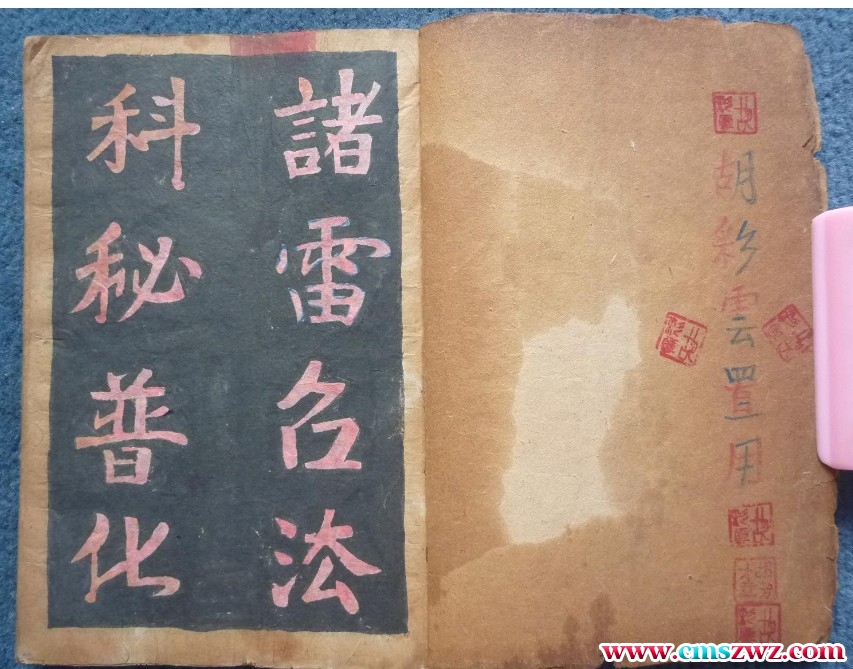 胡彩雲置用
諸雷召法
科秘普化
www.cmszwz.com